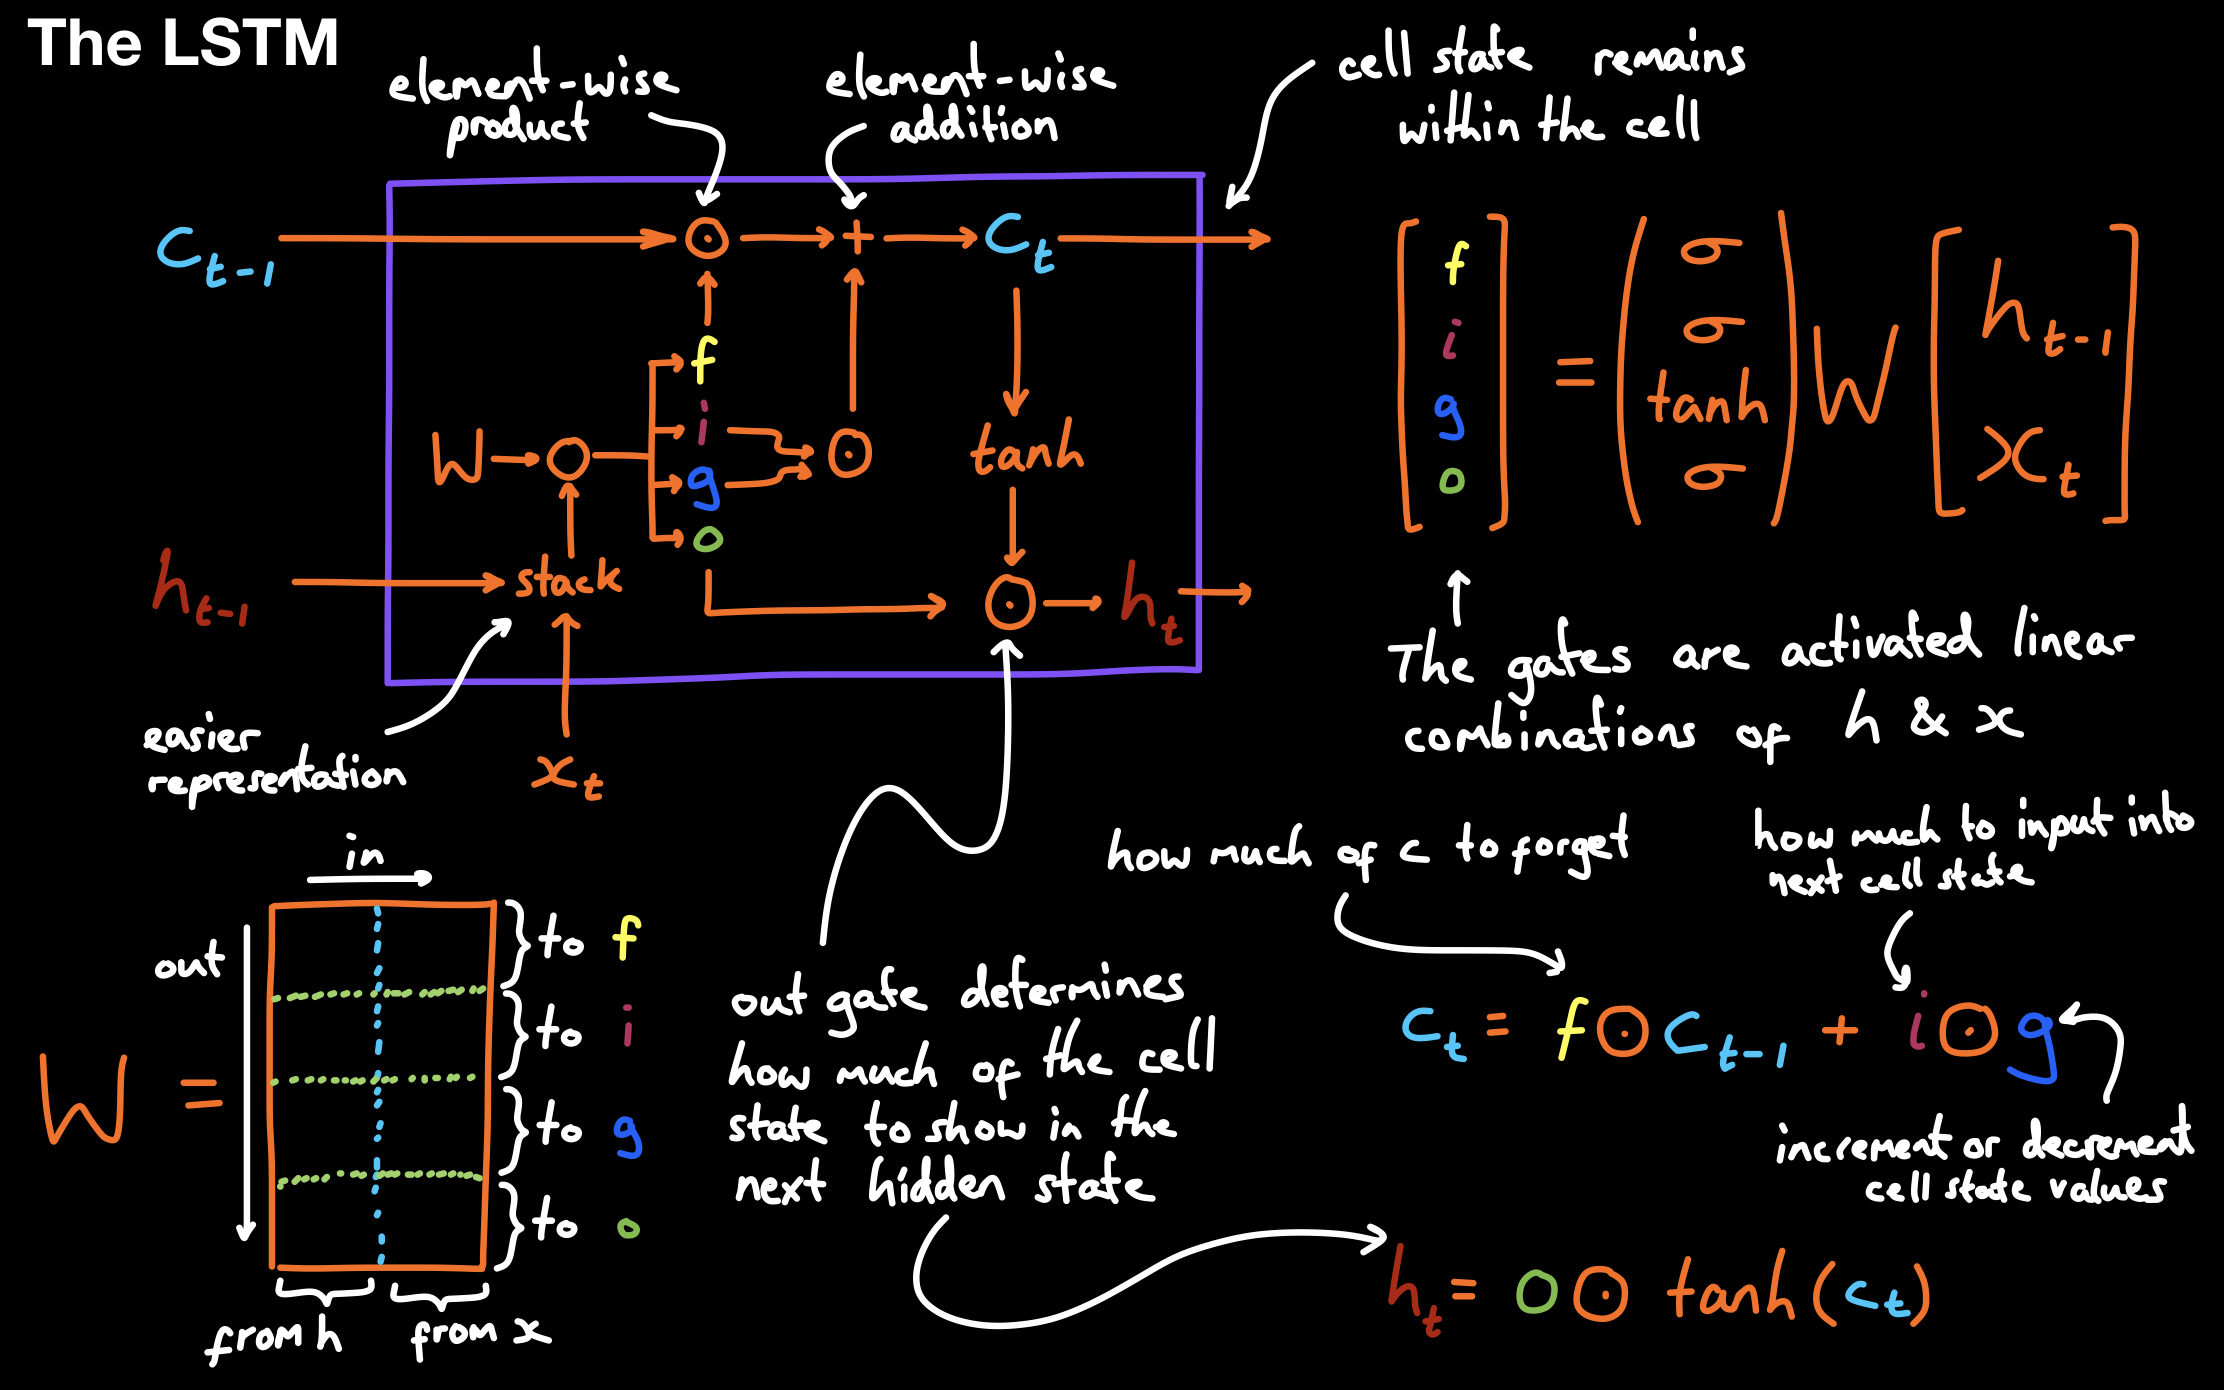 The LSTM
element-wise
product
element-wise
addition
cell state remains
within the cell
C_{t-1}
⊙
+
C_t
f
i
g
o
W
○
⊙
tanh
h_{t-1}
stack
⊙
h_t
x_t
easier
representation
[f i g o] = (σ σ tanh σ) W [h_{t-1} x_t]
The gates are activated linear
combinations of h & x
in
out
W =
} to f
} to i
} to g
} to o
from h
from x
out gate determines
how much of the cell
state to show in the
next hidden state
how much of c to forget
how much to input into
next cell state
c_t = f ⊙ c_{t-1} + i ⊙ g
increment or decrement
cell state values
h_t = o ⊙ tanh(c_t)